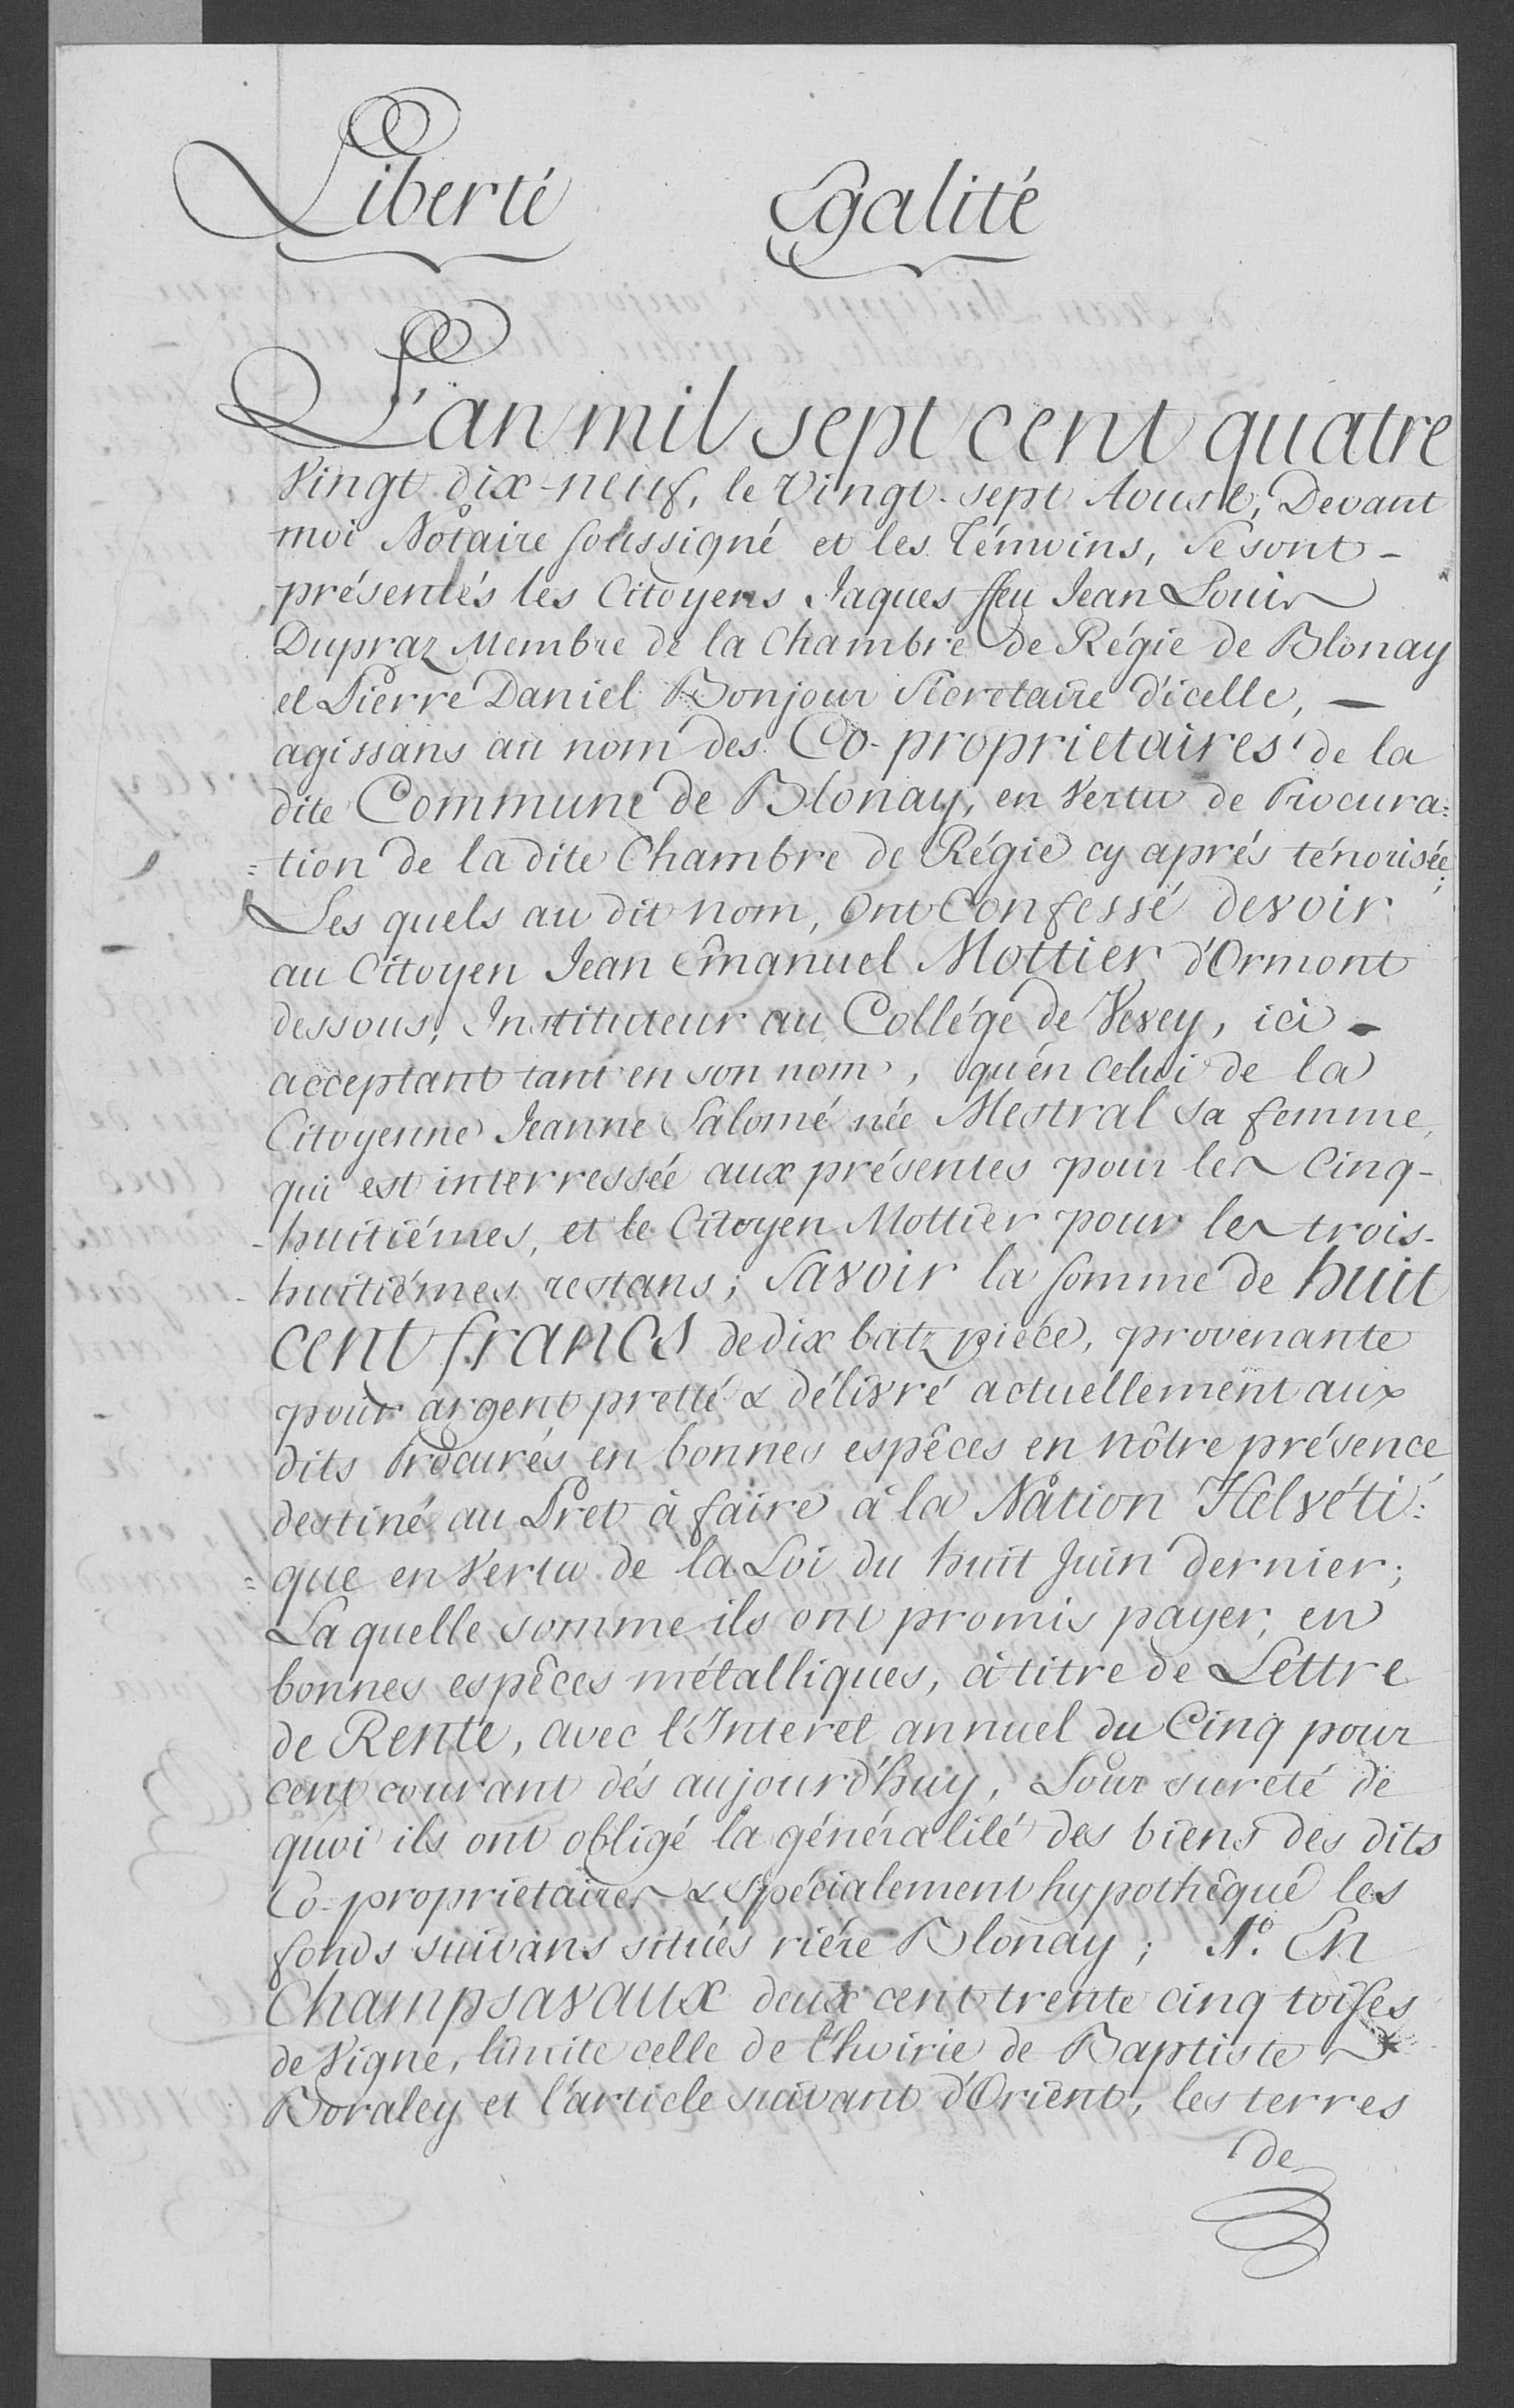 Liberté Egalité
L'an mil sept cent quatre
Vingt dix-neuf, le Vingt-sept Aoust, Devant
moi Notaire soussigné et les Témoins, Se sont -
présentés les Citoyens Jaques ffeu Jean Louis
Dupraz Membre de la Chambre de Régie de Blonay
et Pierre Daniel Bonjour Secretaire d'icelle, —
agissans au nom des Co-proprietaires de la
dite Commune de Blonay, en Vertu de Procura=
=tion de la dite Chambre de Régie cy aprés ténorisée;
Les quels au dit nom, Ont Confessé devoir
au Citoyen Jean Emanuel Mottier d'Ormont
dessous, Instituteur au Collége de Vevey, ici -
acceptant tant en son nom, qu'en celui de la
Citoyenne Jeanne Salomé née Mestral sa femme,
qui est interressée aux présentes pour les Cinq-
-huitiémes, et le Citoyen Mottier pour les trois-
-huitiémes restans; Savoir la Somme de huit
cent francs de dix batz piéce, provenante
pour argent pretté & délivré actuellement aux
dits Procurés en bonnes espêces en nôtre présence
destiné au Pret à faire à la Nation Helvéti=
=que en Vertu de la Loi du huit Juin dernier;
La quelle somme ils ont promis payer, en
bonnes espêces métalliques, à titre de Lettre
de Rente, avec l'Interet annuel du Cinq pour
cent courant dés aujourd'huy, Pour sureté de
quoi ils ont obligé la généralité des biens des dits
Co-proprietaires & spécialement hypothêqué les
fonds suivans situés riére Blonay; 1º. En
Champsavaux deux cent trente cinq toises
de Vigne, limite celle de l'hoirie de Baptiste
Boraley et l'article suivant d'Orient, les terres
de